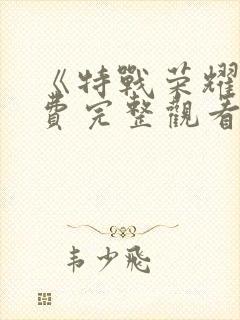 《特戰荣耀
費完整觀看
韦少飛